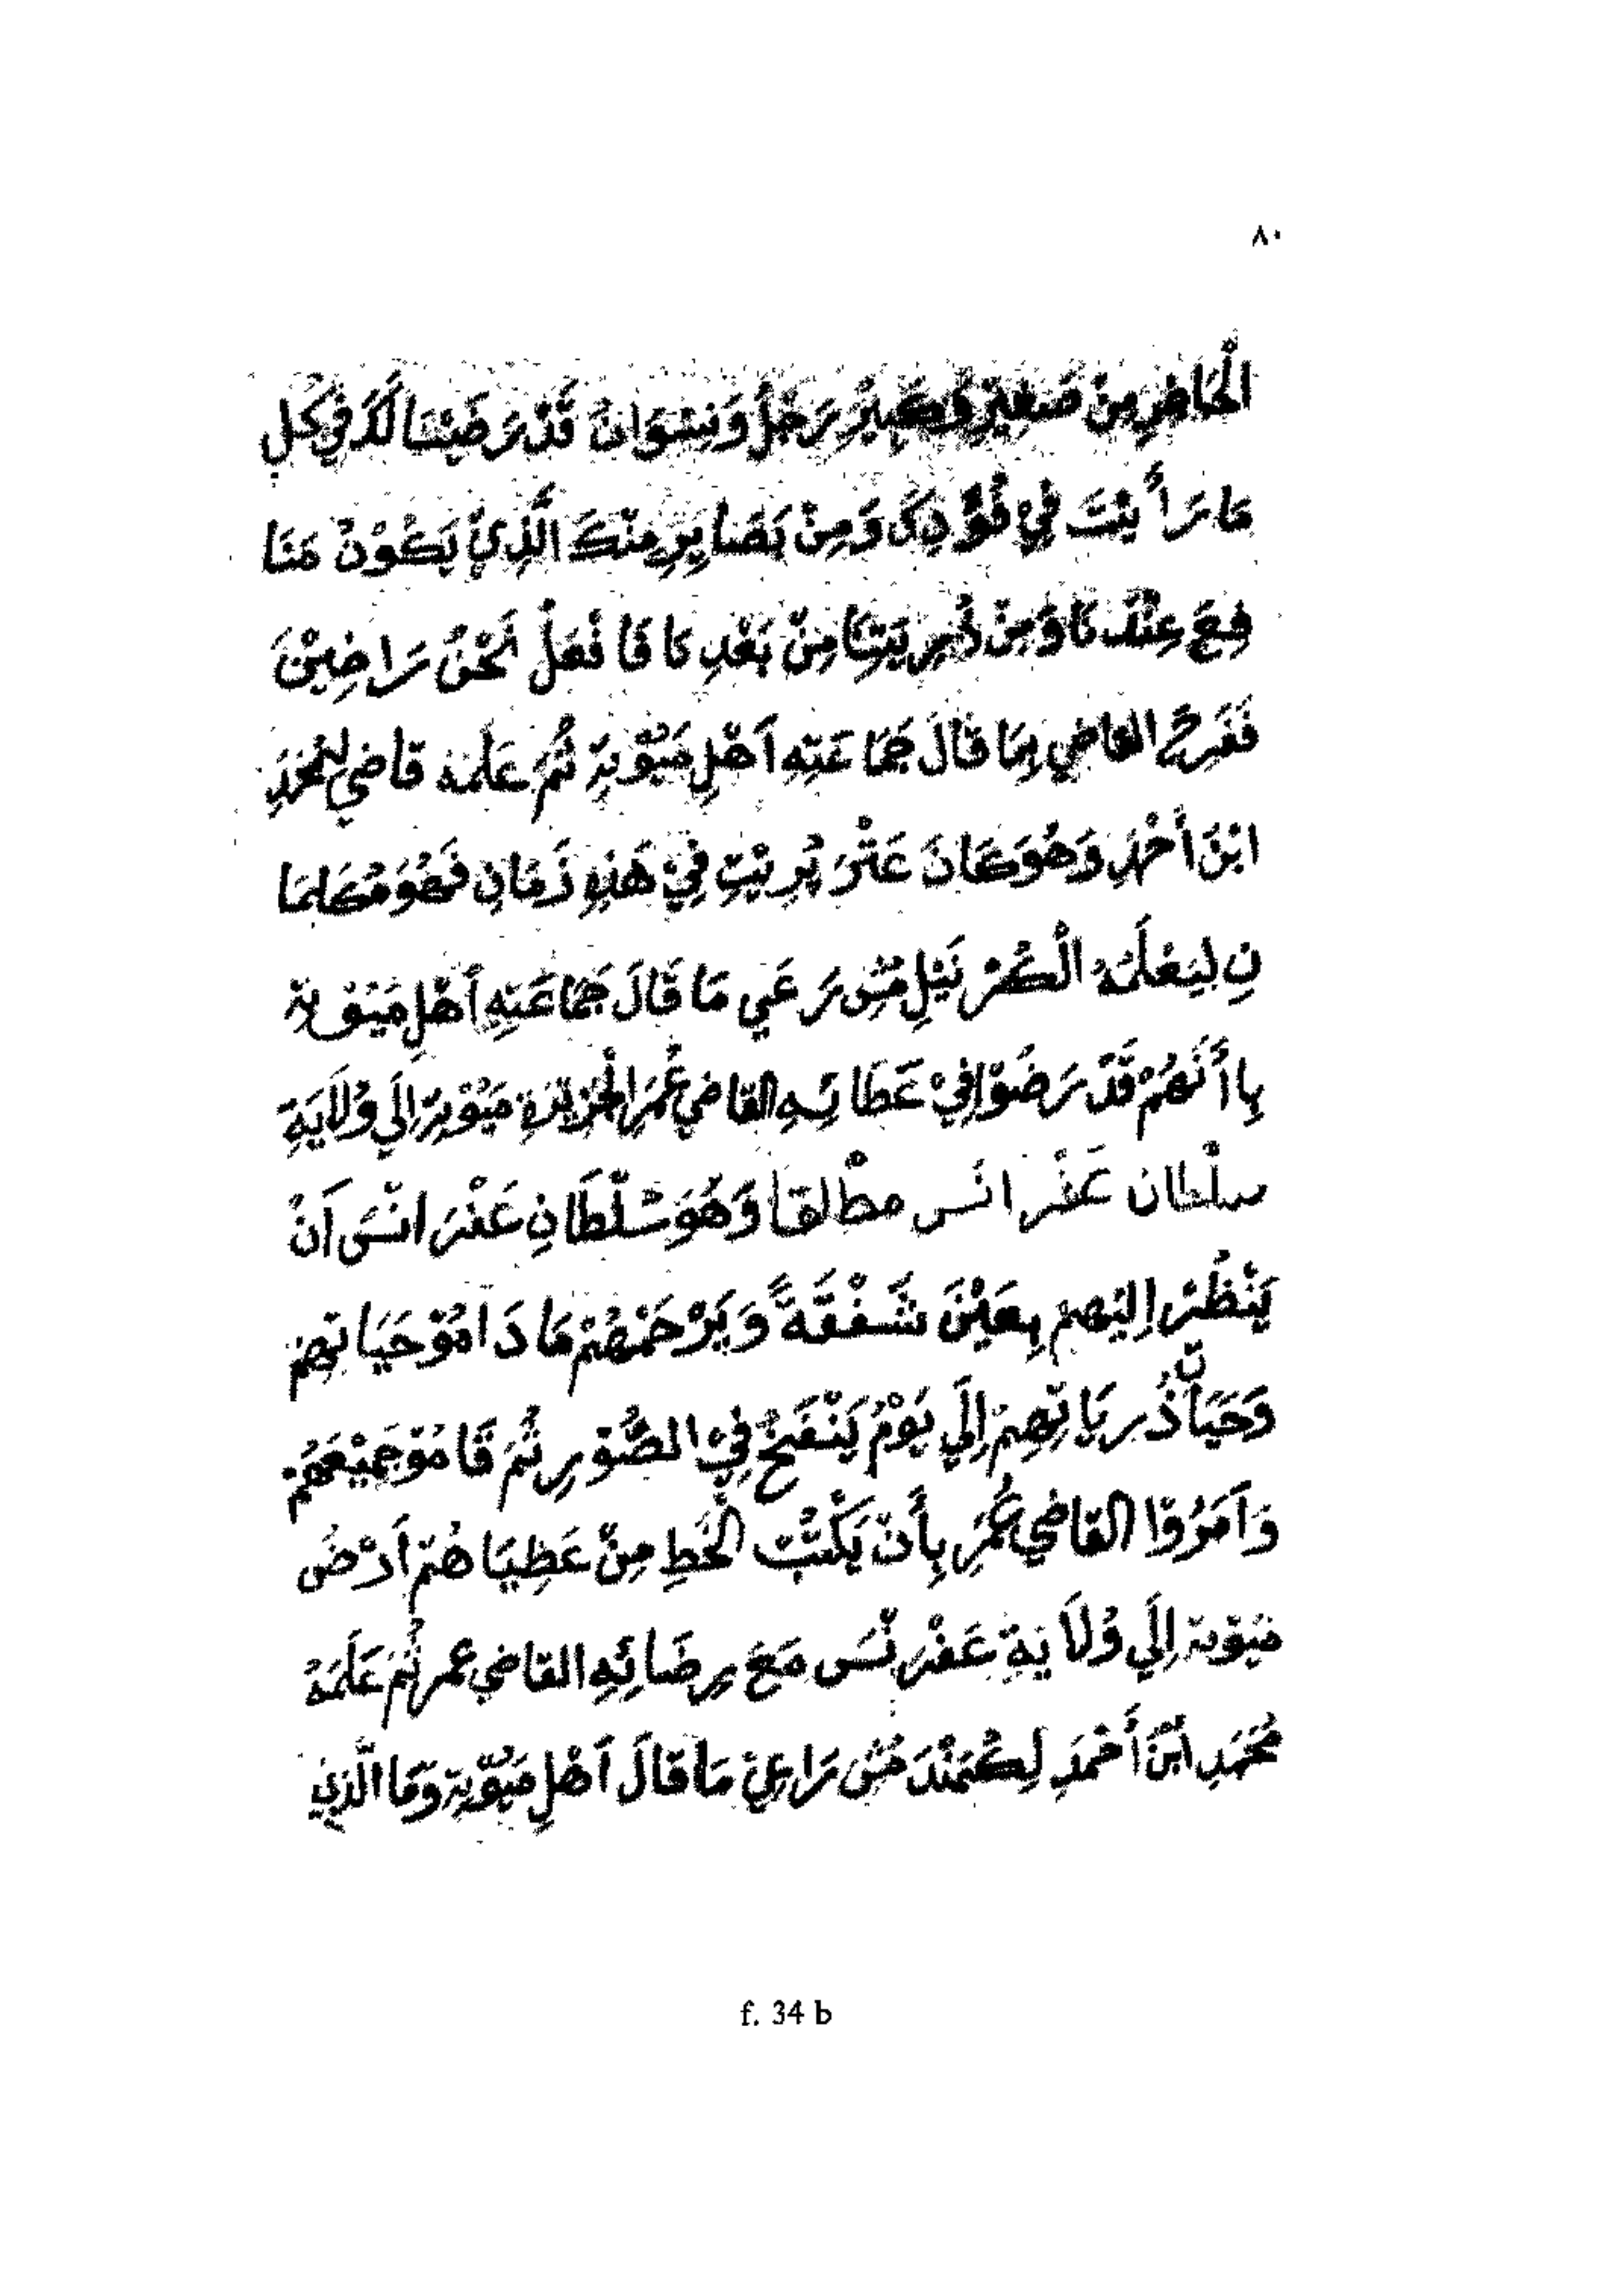 ٨٠
الْحَاضِرِ مِنْ صَغِيْرٍ وَكَبِيْرٍ رَجُلٌ وَنِسْوَانٌ قَدْ رَضَيْنَا لَكَ فِي كُلِ
مَا رَأَيْتَ فِي فُؤَدِكَ وَمِنْ بَصَايِرِ مِنْكَ الَّذِيْ يَكُوْنُ مَنَا
فِعَ عِنْدَنَا وَمِنْ ذُرِيَتِنَا مِنْ بَعْدِنَا فَافْعَلْ نَحْنُ رَاضِيْنَ
فَفَرِحَ القاضي بِمَا قَالَ جَمَاعَتِهِ اَهْلِ مَيُوْتِةِ ثُمَ عَلَمَهُ قاضي لِمُحَمَدِ
ابْنَ أَحْمَدِ وَهُوَ كَانَ عَنْتَرَ بُرِيْتِ فِيْ هَذِهِ زَمَانِ فَهُوَ مُكَلِمَا
نِ لِيَعْلَمَهُ الْكُرْنَيْلِ مُشِيْ رَعِي مَا قَالَ جَمَاعَتِهِ أَهْلِ مَيَوْتِة
بِاأَنَهُمْ قَدْ رَضُوْا فِيْ عَطَائِهِ القاضي عُمَرَ الْجَزِيْرَةِ مَيُوْتِة إِلَي وُلَايَةِ
سلْطان عَفْرانَس مطْلقا وَهُوَ سُلْطَانِ عَفْرَانْسَى اَنْ
يَنْظُرْ اِلَيْهم بِعَيْنَ شَفْقَةً وَيَرْحَمْهُمْ مَا دَامُوْ حَيَاتِهِمْ
وَحَيَاةُ ذُرِيَاتِهِمْ إِلَي يَوْمُ يَنْفَخُ فِيْ الصُّوْرِ ثُمَ قَامُوْ جَمِيْعَهُمْ
وَاَمَرُوْا القاضي عُمَرِ بِأَنْ يَكْتُبْ الْخَطِ مِنْ عَطِيَاهُمْ اَرْضَ
مَيَوْتة إِلَي وُلَايَةِ عَفْرَنْسَى مَعَ رِضَائِهِ القاضي عمر ثُمَ عَلَمَهُ
مُحَمَدِ ابْنَ أَحْمَدِ لِكُمَنْدَ مُشِى رَاعِيْ مَا قَالَ اَهْلِ مَيُوْتِة وَمَا الَّذِيْ
f. 34 b